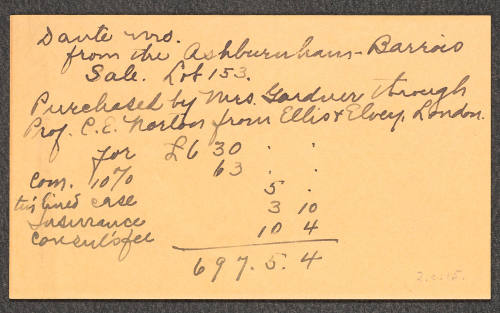 Dante mss.
from the Ashburnham-Barrois
Sale. Lot 153.
Purchased by Mrs. Gardner through
Prof. C. E. Norton from Ellis & Elvey, London.
for £630 . .
Com. 10% 63 . .
tin lined case 5 .
Insurance 3 10
Consul's fee 10 4
697. 5. 4
2.c.15.